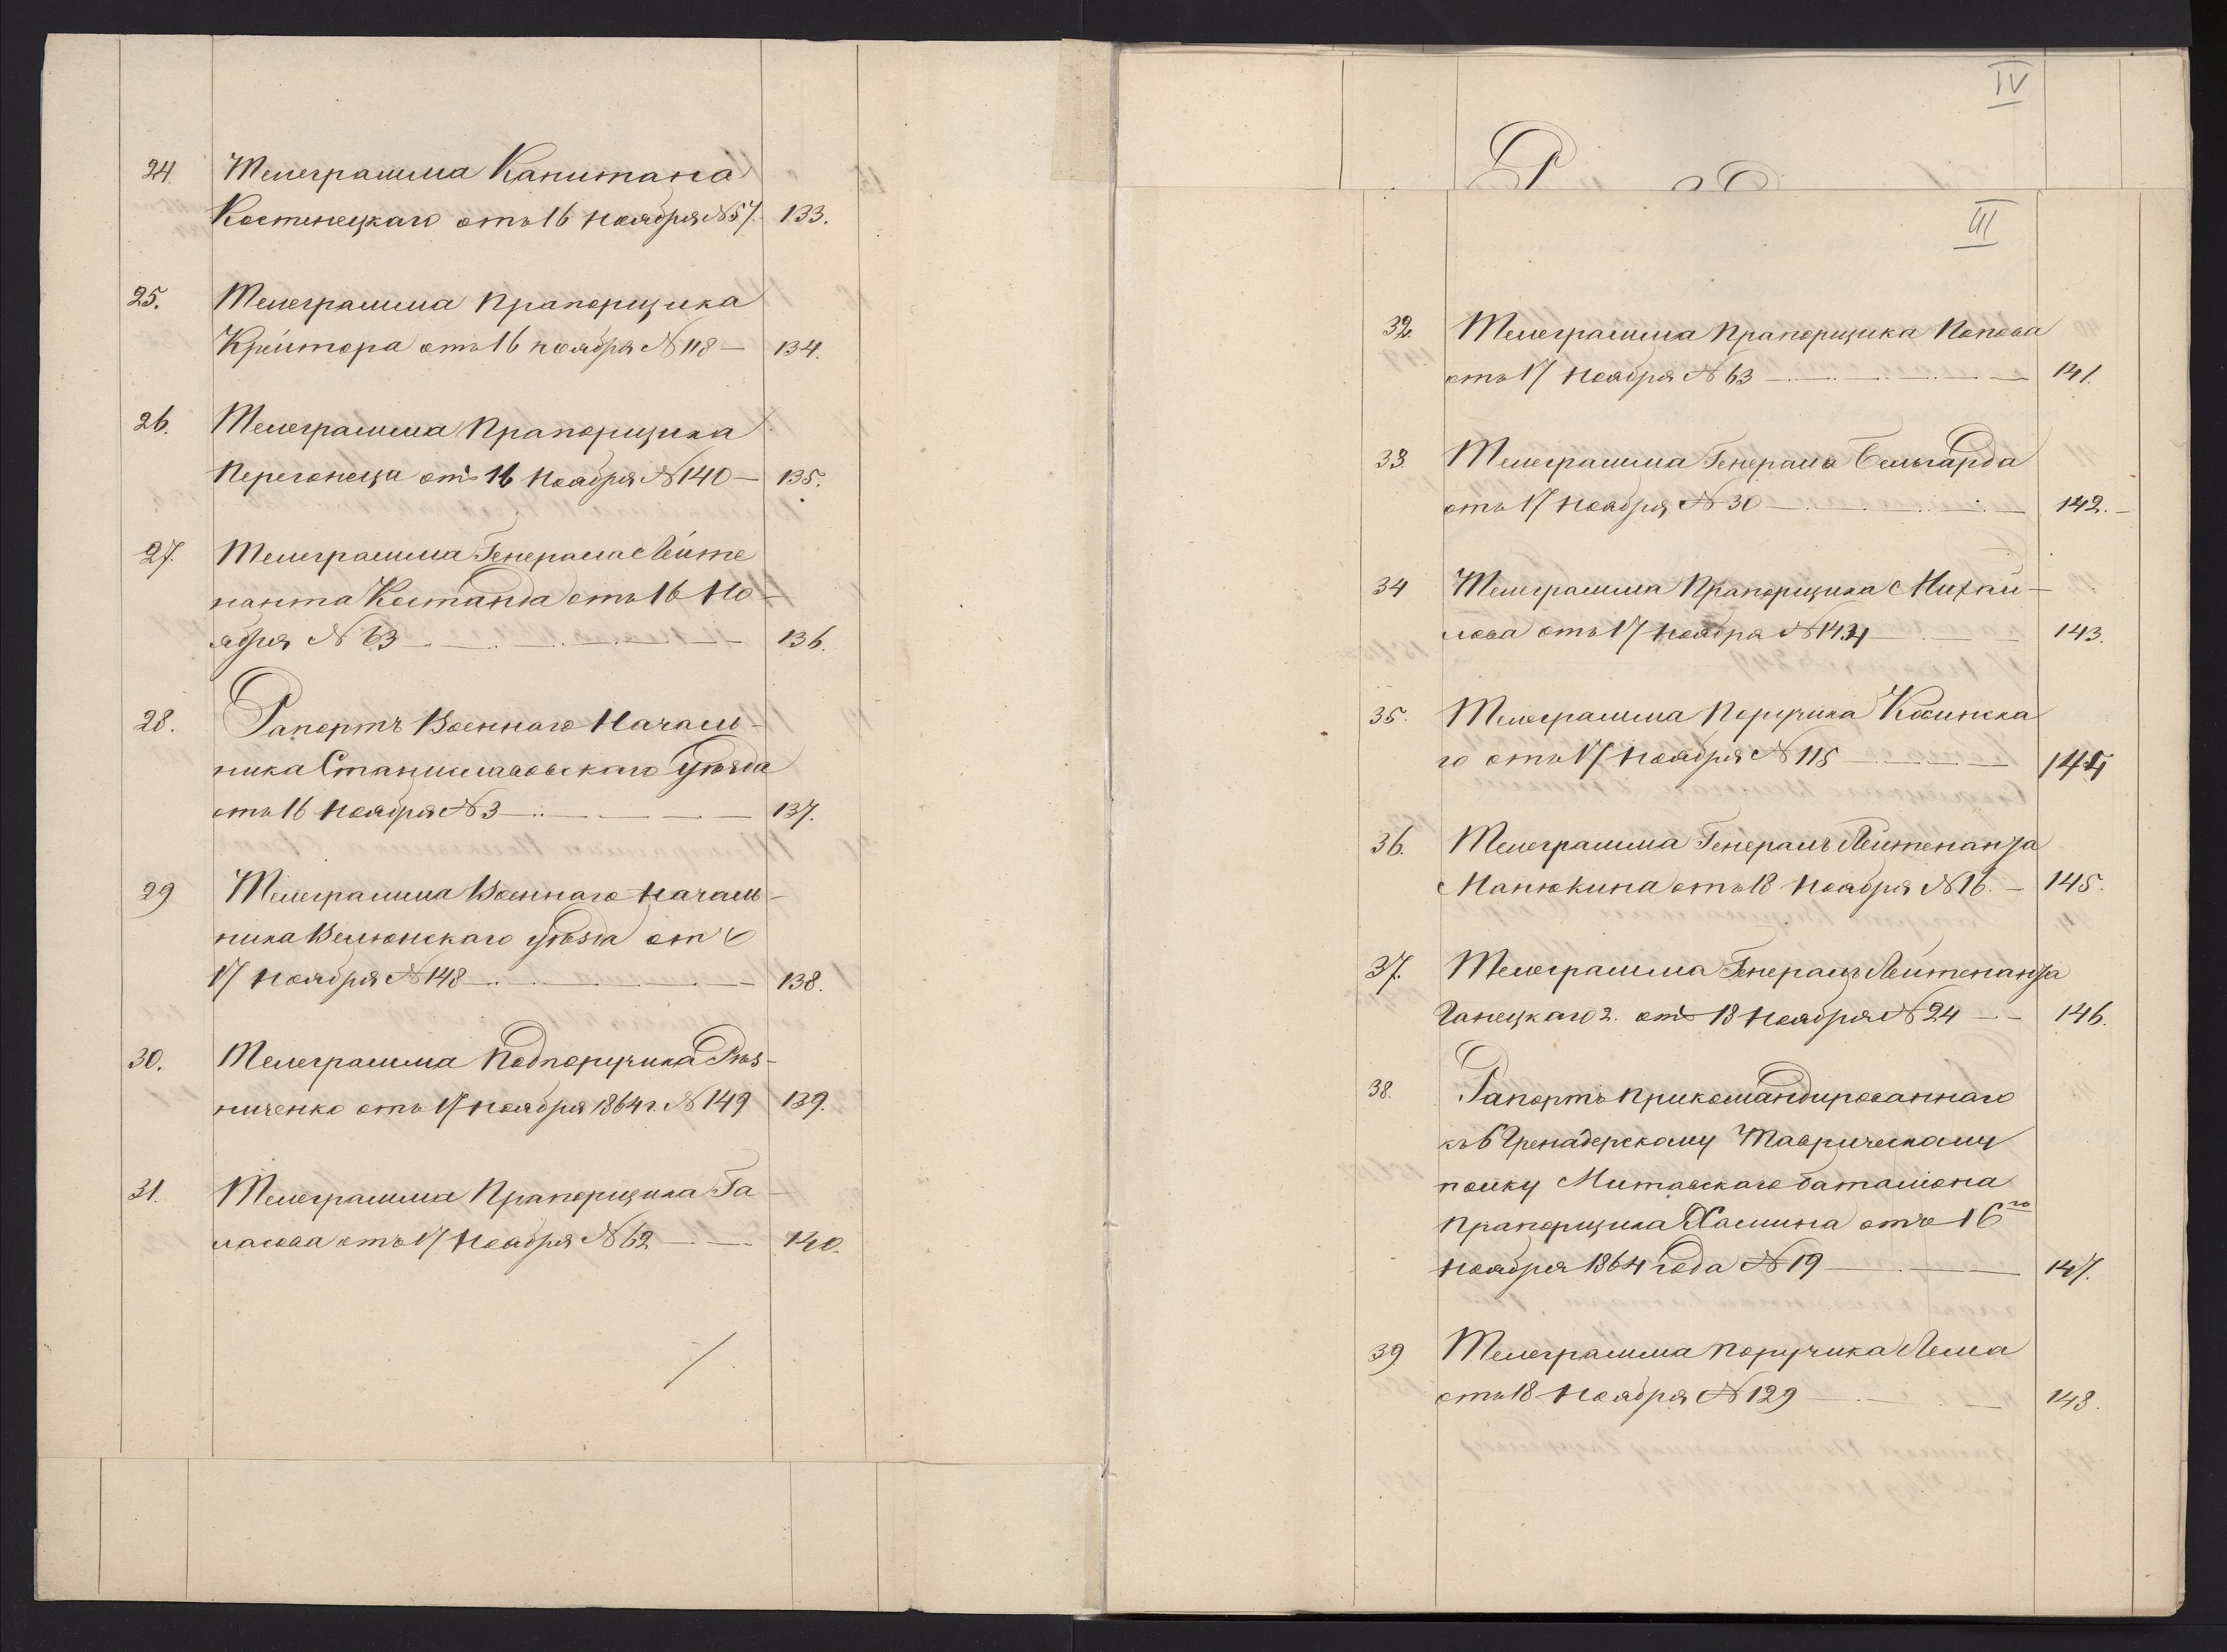 24. Телеграмма Капитана
Костенецкаго отъ 16 Ноября №57. 133.
25. Телеграмма Прапорщика
Крейтора отъ 16 ноября № 118 — 134.
26. Телеграмма Прапорщика
Перегонеца отъ 16 Ноября № 140 — 135.
27. Телеграмма Генерала Лейте
нанта Костанда отъ 16 Но-
ября № 63 — 136.
28. Рапортъ Военнаго Началь-
ника Станиславовскаго Уѣзда
отъ 16 Ноября № 3 — 137.
29 Телеграмма Военнаго Началь-
ника Велюнскаго уѣзда отъ
17 Ноября № 148 — 138.
30. Телеграмма Подпоручика Рѣз-
ниченко отъ 17 Ноября 1864 г. № 149 139.
31. Телеграмма Прапорщика Га-
ласова отъ 17 Ноября № 62 — 140.
IV
III
32. Телеграмма Прапорщика Попова
отъ 17 Ноября № 63 — 141.
33. Телеграмма Генерала Бельгарда
отъ 17 Ноября № 30 — 142.
34 Телеграмма Прапорщика Михай-
лова отъ 17 Ноября № 144 — 143.
35. Телеграмма Поручика Косинска
го отъ 17 Ноября № 115 — 144
36. Телеграмма Генералъ Лейтенанта
Манюкина отъ 18 Ноября № 16. — 145.
37. Телеграмма Генералъ Лейтенанта
Ганецкаго 2. отъ 18 Ноября № 24 — 146.
38. Рапортъ прикомандированнаго
къ 6 Гренадерскому Таврическому
полку Митавскаго баталіона
Прапорщика Халина отъ 16го
Ноября 1864 года № 19 — 147.
39 Телеграмма поручика Леша
отъ 18 Ноября № 129 — 148.